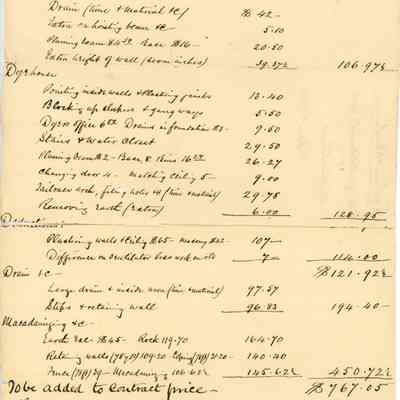 Drain (time & material &c) $42–
Extra on hoisting beam &c – 5.10
Planing beam $4.50 Base $16– 20.50
Extra height of wall (seven inches) 39.37½ 106.97½
Dyehouse
Pointing inside walls & flushing joints 13.40
Blocking up sleepers & gangways 5.50
Dyers Office Drains in foundation 9.50
Stairs & Water Closet 29.50
Planing Beam Base & Bins 26.27
Changing door 4– matching ceiling 5– 9.00
Tailrace arch, filling holes (time & material) 29.78
Removing Earth (Eaton) 6.00 128.95
Deductions:
Plastering walls & ceiling $65– 107–
Difference on ventilator 7– 114.00
Drain &c – $121.92½
Large drain & inside area (time & material) 97.57
Steps & retaining wall 96.83 194.40
Macadamizing &c –
Earth Exc– $45– Rock 119.70 164.70
Retaining walls 109.20 Coping 31.20 140.40
Fence 39– Macadamizing 106.62½ 145.62½ 450.72½
To be added to contract price – $767.05